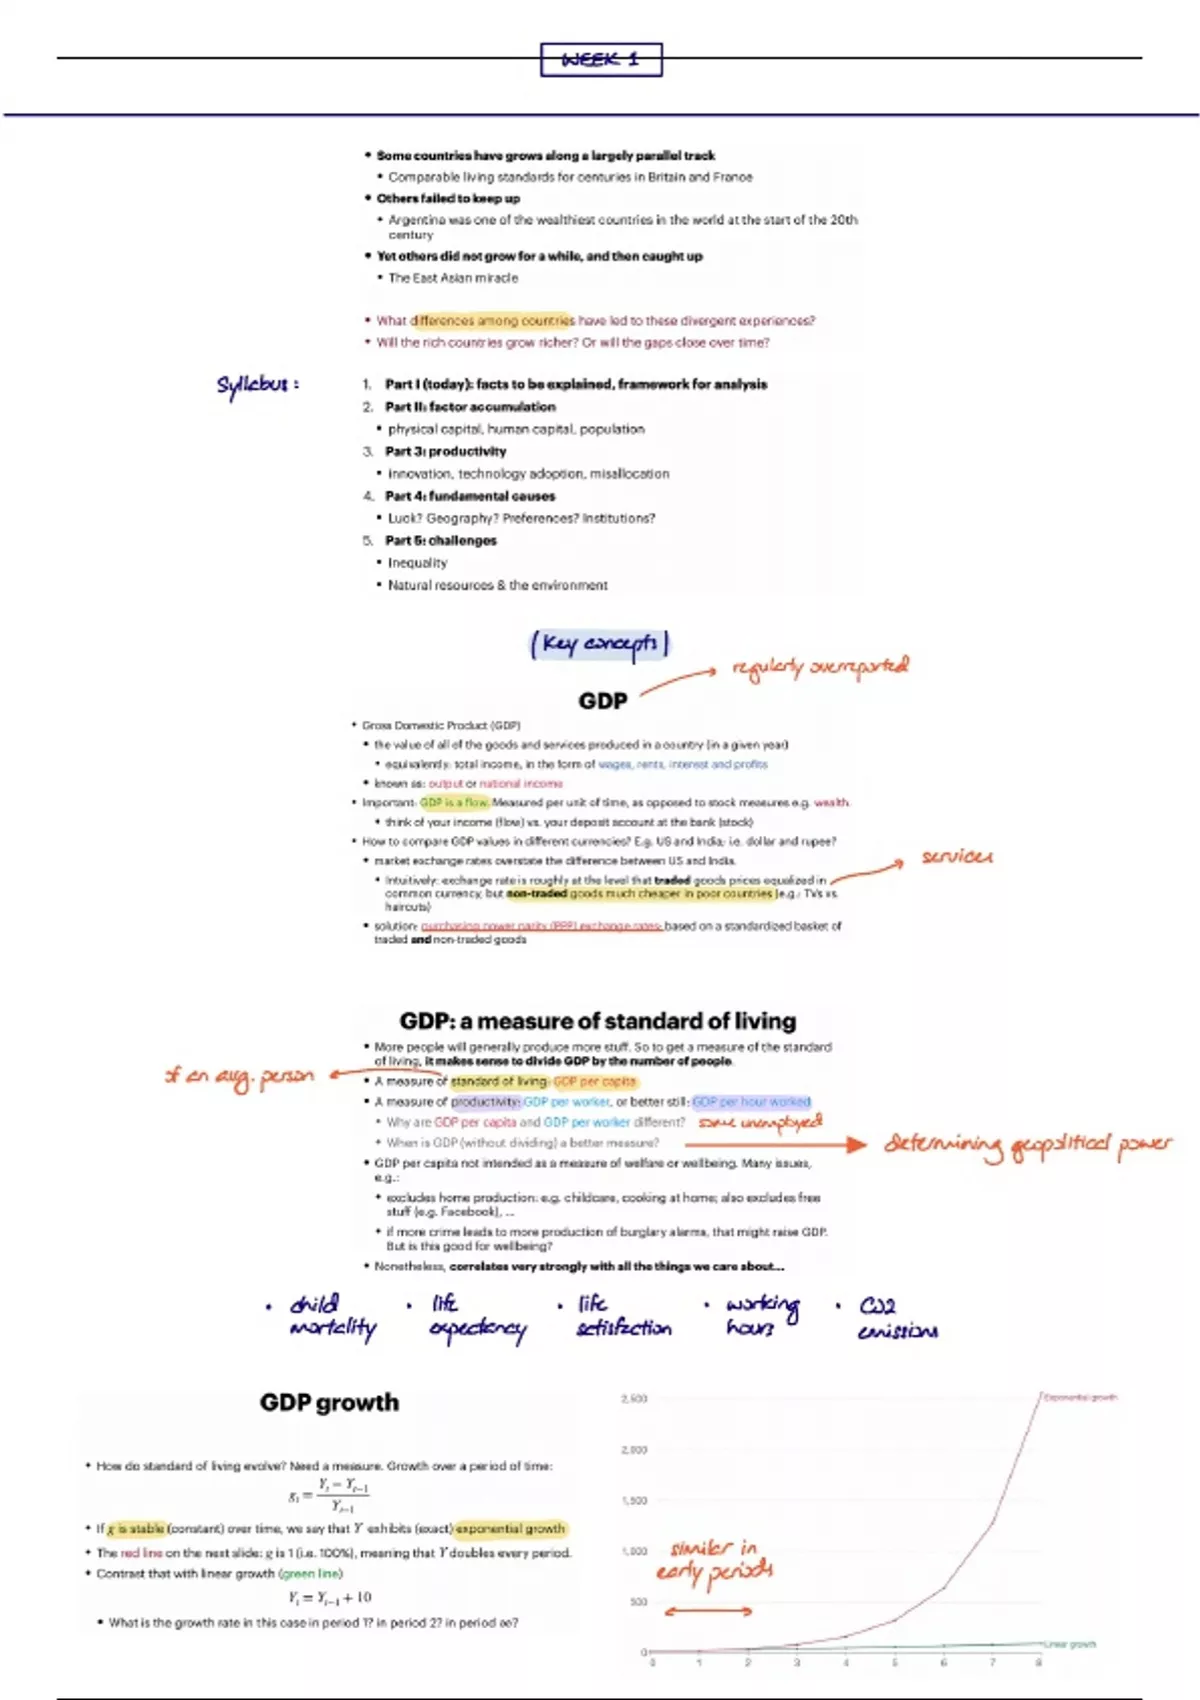 WEEK 1
• Some countries have grows along a largely parallel track
• Comparable living standards for centuries in Britain and France
• Others failed to keep up
• Argentina was one of the wealthiest countries in the world at the start of the 20th
century
• Yet others did not grow for a while, and then caught up
• The East Asian miracle
• What differences among countries have led to these divergent experiences?
• Will the rich countries grow richer? Or will the gaps close over time?
Syllabus:
1. Part I (today): facts to be explained, framework for analysis
2. Part II: factor accumulation
• physical capital, human capital, population
3. Part 3: productivity
• innovation, technology adoption, misallocation
4. Part 4: fundamental causes
• Luck? Geography? Preferences? Institutions?
5. Part 5: challenges
• Inequality
• Natural resources & the environment
(Key concepts)
regularly overreported
GDP
• Gross Domestic Product (GDP)
• the value of all of the goods and services produced in a country (in a given year)
• equivalently: total income, in the form of wages, rents, interest and profits
• known as: output or national income
• Important: GDP is a flow. Measured per unit of time, as opposed to stock measures e.g. wealth.
• think of your income (flow) vs. your deposit account at the bank (stock)
• How to compare GDP values in different currencies? E.g. US and India; i.e. dollar and rupee?
• market exchange rates overstate the difference between US and India.
services
• Intuitively: exchange rate is roughly at the level that traded goods prices equalized in
common currency, but non-traded goods much cheaper in poor countries (e.g.: TVs vs.
haircuts)
• solution: purchasing power parity (PPP) exchange rates: based on a standardized basket of
traded and non-traded goods
GDP: a measure of standard of living
• More people will generally produce more stuff. So to get a measure of the standard
of living, it makes sense to divide GDP by the number of people.
of an avg. person
• A measure of standard of living: GDP per capita
• A measure of productivity: GDP per worker, or better still: GDP per hour worked
• Why are GDP per capita and GDP per worker different? some unemployed
• When is GDP (without dividing) a better measure? determining geopolitical power
• GDP per capita not intended as a measure of welfare or wellbeing. Many issues,
e.g.:
• excludes home production: e.g. childcare, cooking at home; also excludes free
stuff (e.g. Facebook), ...
• if more crime leads to more production of burglary alarms, that might raise GDP.
But is this good for wellbeing?
• Nonetheless, correlates very strongly with all the things we care about...
• child
mortality
• life
expectancy
• life
satisfaction
• working
hours
• CO2
emissions
GDP growth
• How do standard of living evolve? Need a measure. Growth over a period of time:
g_t = (Y_t − Y_{t−1}) / Y_{t−1}
• If g is stable (constant) over time, we say that Y exhibits (exact) exponential growth
• The red line on the next slide: g is 1 (i.e. 100%), meaning that Y doubles every period.
• Contrast that with linear growth (green line)
Y_t = Y_{t−1} + 10
• What is the growth rate in this case in period 1? in period 2? in period ∞?
2,500
2,000
1,500
1,000
500
0
Exponential growth
similar in
early periods
Linear growth
0 1 2 3 4 5 6 7 8